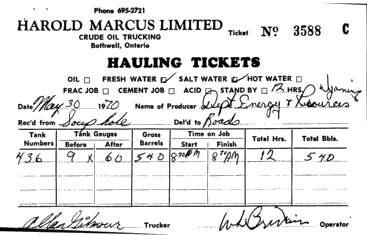 Phone 695-2721
HAROLD MARCUS LIMITED
CRUDE OIL TRUCKING
Bothwell, Ontario
Ticket Nº 3588 C
HAULING TICKETS
OIL FRESH WATER SALT WATER HOT WATER
FRAC JOB CEMENT JOB ACID STAND BY 12 HRS.
Date May 30 1970 Name of Producer Dept Energy & Resources
Rec'd from Soup hole Del'd to Roads
Tank Numbers Tank Gauges Before After Gross Barrels Time on Job Start Finish Total Hrs. Total Bbls.
436 9 x 60 540 8 PM 12 540
Allan Gilmour Trucker Operator